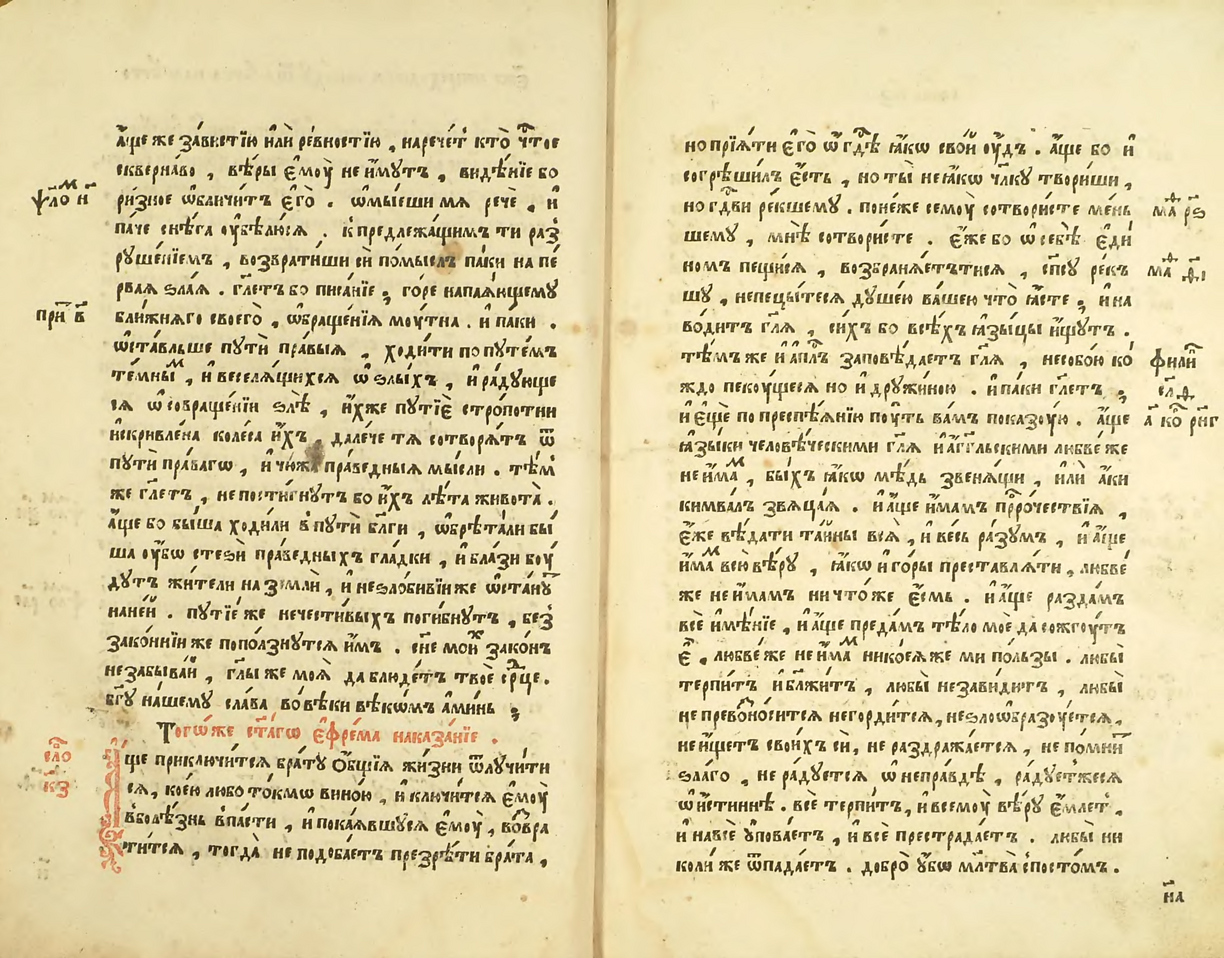 а҆́ще же за́вистїю и҆лѝ ре́вностїю , нарече́тъ ктѡ̀ чт҇ое
скверна́во , вѣ́ры є҆мꙋ̀ не и҆́мꙋтъ , видѣ́нїе бо
ри́зное ѡ҆бличи́тъ є҆го̀ . ѡ҆мы́еши мѧ речѐ , и҆
ѱло́м н҃
па́че снѣ́га ᲂу҆бѣлю́сѧ . к предлежа́щимъ ти раз
рꙋше́нїемъ , возврати́ши си по́мыслъ па́ки на пе́
рваѧ ѕла́ѧ . гл҃етъ бо писа́нїе , го́ре напаѧ́ющемꙋ
при́ в҃
бли́жнѧго своего̀ , ѡ҆браще́нїѧ мꙋ́тна . и҆ па́ки .
ѡ҆ста́вльше пꙋтѝ пра́выѧ , ходи́ти по пꙋте́мъ
те́мнымъ , и҆ веселѧ́щихсѧ ѡ҆ ѕлы́хъ , и҆ ра́дꙋюще
сѧ ѡ҆ совраще́нїи ѕлѣ̀ , и҆́хже пꙋтїѐ стро́потни
и҆скривле́на коле́са и҆́хъ , дале́че тѧ сотворѧ́тъ ѿ
пꙋтѝ пра́вагѡ , и҆ чю́жа пра́ведныѧ мы́сли . тѣ́м
же гл҃етъ , не пости́гнꙋтъ бо и҆́хъ лѣ́та живота̀ .
а҆́ще бо бы́ша ходи́ли в пꙋтѝ бл҃ги , ѡ҆брѣта́ли бы́
ша ᲂу҆́бѡ стеѕѝ пра́ведныхъ гла́дки , и҆ бла́зи бꙋ́
дꙋтъ жи́тели на землѝ , и҆ неѕло́бивїи же ѡ҆ста́нꙋт
на не́й . пꙋтїе́ же нечести́выхъ поги́бнꙋтъ , без
зако́ннїи же по́ползнꙋтсѧ и҆́мъ . сн҃е мо́ихъ зако́нъ
не забыва́й , гл҃ы же моѧ̀ да блюде́тъ твоѐ ср҃це .
бг҃ꙋ на́шемꙋ сла́ва во вѣ́ки вѣкѡ́мъ а҆ми́нь ;
Тогѡ́же ст҃а́гѡ є҆фре́ма наказа́нїе .
сло҃ к҃з
А҆́ще приключи́тсѧ бра́тꙋ ѻ҆́бщїѧ жи́зни ѿлꙋчи́ти
сѧ , ко́ею лю́бо то́кмѡ вино́ю , и҆ ключи́тсѧ є҆мꙋ̀
в болѣ́знь впа́сти , и҆ пока́ѧвшꙋсѧ є҆мꙋ̀ , во́звра
ти́тсѧ , тогда̀ не подоба́етъ презрѣ́ти бра́та ,
но прїѧ́ти є҆го̀ ѡ҆ гд҃ѣ ꙗ҆́кѡ сво́й ᲂу҆́дъ . а҆́ще бо и҆
согрѣши́лъ є҆́сть , но ты̀ не ꙗ҆́кѡ чл҃кꙋ твори́ши ,
но гд҃ви ре́кшемꙋ . поне́же семꙋ̀ сотвори́сте ме́нь
ма҃ р҃ѕ
шемꙋ , мнѣ̀ сотвори́сте . є҆́же бо ѡ҆ себѣ̀ є҆ди́
номъ пещи́сѧ , возбранѧ́етътисѧ , сп҃сꙋ ре́къ
ма҃ д҃і
шꙋ , не пецы́тесѧ дꙋше́ю ва́шею что̀ ꙗ҆́сте , и҆ на
во́дитъ гл҃ѧ , си́хъ бо всѣ́хъ ꙗ҆зы́цы и҆́щꙋтъ .
тѣ́мъ же и҆ а҆пл҃ъ заповѣ́даетъ гл҃ѧ , не собо́ю ко́
фили́п
ждо пекꙋ́щесѧ но и҆ дрꙋжи́ною . и҆ па́ки гл҃етъ ,
сл҃ д
и҆ є҆щѐ по преспѣ́ѧнїю пꙋ́ть ва́мъ показꙋ́ю . а҆́ще
а҃ ко҃ рн҃г
ꙗ҆зы́ки человѣ́ческими гл҃ѧ и҆ а҆́гг҃льскими любве́ же
не и҆́мам , бы́хъ ꙗ҆́кѡ мѣ́дь звенѧ́щи , и҆лѝ а҆́ки
кимва́лъ звѧца́ѧ . и҆ а҆́ще и҆́мамъ прⷪ҇ро́чествїѧ ,
є҆́же вѣ́дати та́йны всѧ̀ , и҆ ве́сь ра́зꙋмъ , и҆ а҆́ще
и҆́мам всю̀ вѣ́рꙋ , ꙗ҆́кѡ и҆ го́ры преставлѧ́ти , любве́
же не и҆́мамъ ничто́же є҆́смь . и҆ а҆́ще разда́мъ
всѐ и҆мѣ́нїе , и҆ а҆́ще преда́мъ тѣ́ло моѐ да сожгꙋ́тъ
є҆̀ , любве́ же не и҆́мам никоеѧ́же ми по́льзы . любы̀
терпи́тъ и҆ бл҃жи́тъ , любы̀ не зави́дитъ , любы̀
не превоно́ситсѧ не горди́тсѧ , не ѕлоѡбразꙋ́етсѧ ,
не и҆́щетъ свои́хъ си , не раздража́етсѧ , не по́мнит
ѕла́го , не ра́дꙋетсѧ ѡ҆ непра́вдѣ , ра́дꙋетжесѧ
ѡ҆ и҆́стиннѣ . всѐ терпи́тъ , и҆ всемꙋ̀ вѣ́рꙋ є҆́млет ,
и҆ на всѐ ᲂу҆пова́етъ , и҆ всѐ престрада́етъ . любы̀ ни
коли́ же ѿпада́етъ . добро̀ ᲂу҆́бѡ мл҃тва с посто́мъ .
на